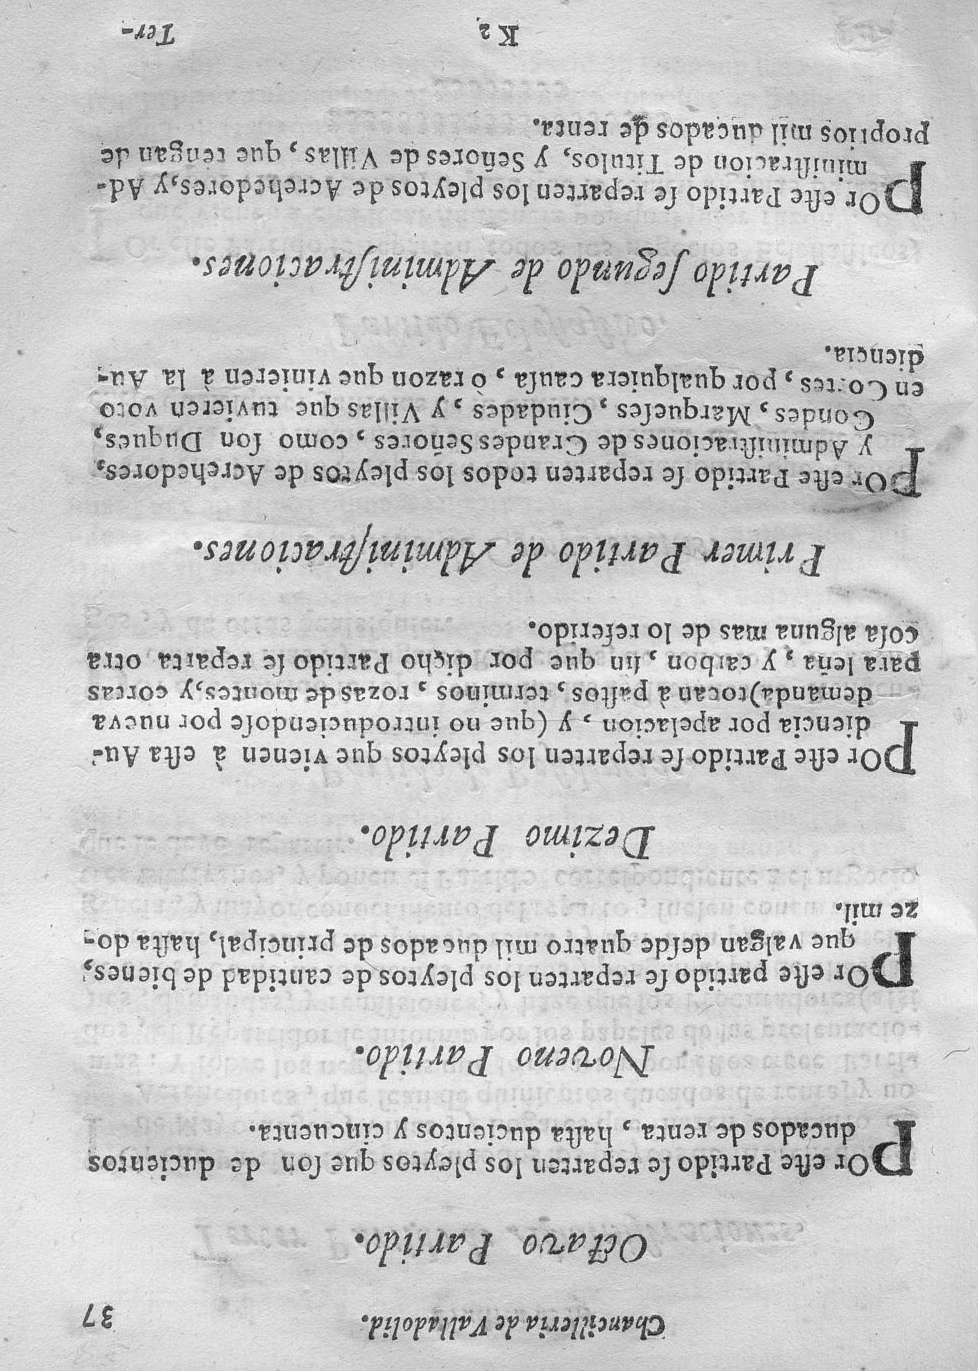 Chancilleria de Valladolid. 37
Octavo Partido.
POr este Partido se reparten los pleytos que son de ducientos
ducados de renta, hasta ducientos y cincuenta.
Noveno Partido.
POr este partido se reparten los pleytos de cantidad de bienes,
que valgan desde quatro mil ducados de principal, hasta do-
ze mil.
Dezimo Partido.
POr este Partido se reparten los pleytos que vienen à esta Au-
diencia por apelacion, y (que no introduciendose por nueva
demanda) tocan à pastos, terminos, rozas de montes, y cortas
para leña, y carbon, sin que por dicho Partido se reparta otra
cosa alguna mas de lo referido.
Primer Partido de Administraciones.
POr este Partido se reparten todos los pleytos de Acrehedores,
y Administraciones de Grandes Señores, como son Duques,
Condes, Marqueses, Ciudades, y Villas que tuvieren voto
en Cortes, por qualquiera causa, ò razon que vinieren à la Au-
diencia.
Partido segundo de Administraciones.
POr este Partido se reparten los pleytos de Acrehedores, y Ad-
ministracion de Titulos, y Señores de Villas, que tengan de
proprios mil ducados de renta.
K 2 Ter-